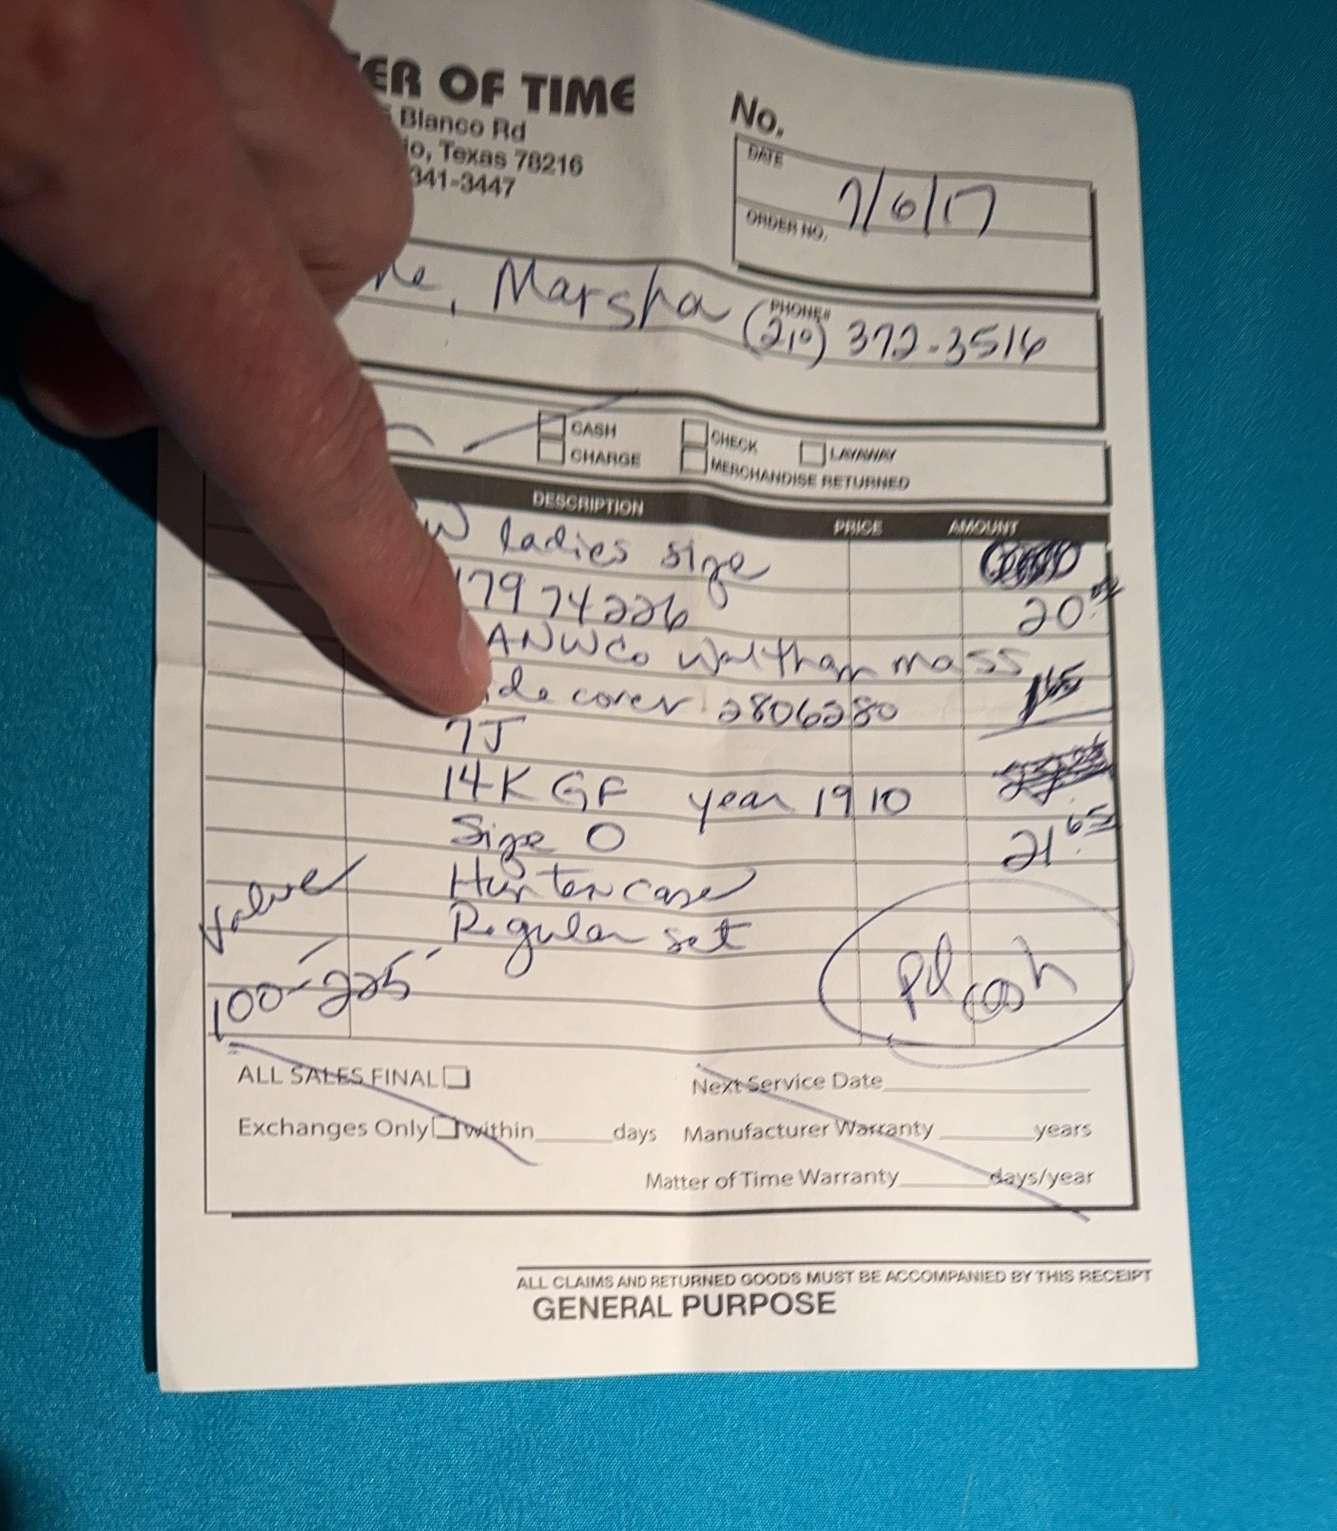 ER OF TIME
Blanco Rd
io, Texas 78216
341-3447
No.
DATE
7/6/17
ORDER NO.
ne, Marsha
PHONE#
(210) 372-3516
CASH
CHECK
LAYAWAY
CHARGE
MERCHANDISE RETURNED
DESCRIPTION PRICE AMOUNT
W ladies size
17974226 20.00
ANWCo Waltham mass
ide cover 2806280 1 65
7J
14K GF year 1910
Size O 21.65
Hunter case
Regular set
Value
100-225
Pd cash
ALL SALES FINAL
Next Service Date
Exchanges Only within days
Manufacturer Warranty years
Matter of Time Warranty days/year
ALL CLAIMS AND RETURNED GOODS MUST BE ACCOMPANIED BY THIS RECEIPT
GENERAL PURPOSE